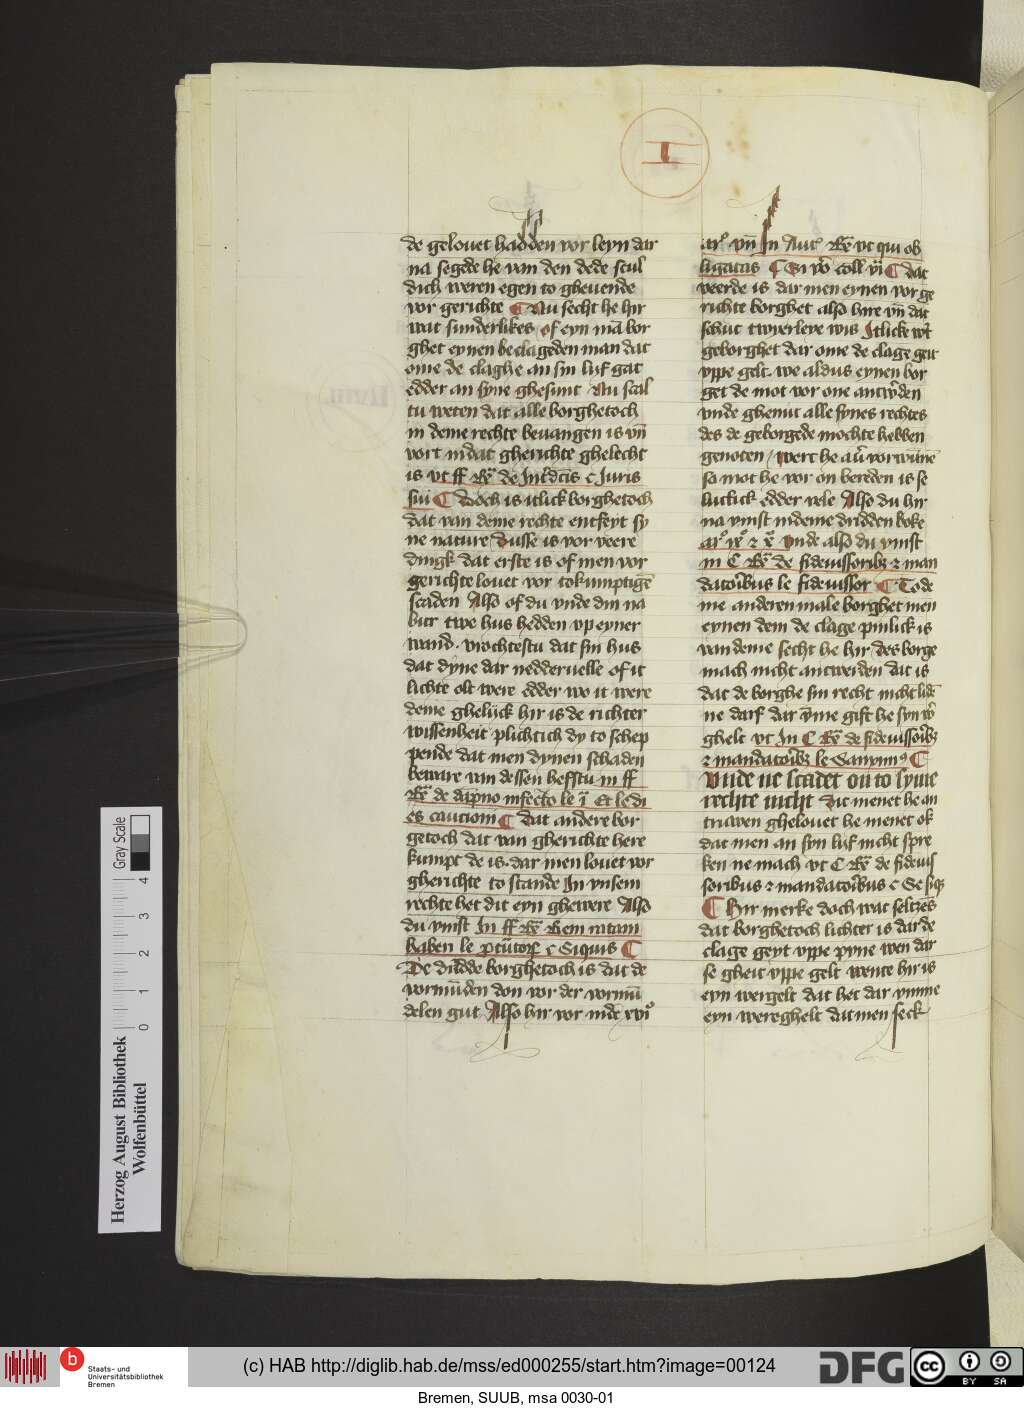 I
de gelouet hadden vor leyn dar
na segede he van den dede scul
dich weren egen to gheuende
vor gerichte ¶ Nu secht he hir
wat sunderlikes of eyn mā bor
ghet eynen beclageden man dat
ome de claghe an sin lyf gat
edder an syne ghesunt Nu scal
tu weten dat alle borghetoch
in deme rechte beuangen is vn̄
vort in dat gherichte ghelecht
is vt ff
sui ¶ doch is itlick borghetoch
dat van deme rechte entseyt sy
ne nature dusse is vor veere
dingk dat erste is of men vor
gerichte louet vor tokumptigē
scaden Also of du vnde din na
bur twe hus hedden vp eyner
wand. mochtestu dat sin hus
dat dyne dar nedderuelle of it
lichte olt were edder wo it were
deme ghelijck hir is de richter
wissenheit plichtich dy to schep
pende dat men dynen schaden
beware van dessen hefstu in ff
es caucioni ¶ dat andere bor
getoch dat van gherichte here
kumpt de is. dar men louet vor
gherichte to stande In vnsem
rechte het dit eyn ghewere Also
du vinst In ff Rē Rem ratam
haben le
De dridde borghetoch is dat de
vormūden don vor der vormū
delen gut Also hir vor in de xvi°
ar° vn̄ In Aut° Rē vt qui ob
ligatas ¶ dat
veerde is dar men eynen vor ge
richte borghet also hire vn̄ dat
schut twyerleye wis Itlicke wˢt
geborghet dar ome de clage geit
vppe gelt. we aldus eynen bor
get de mot vor one antwˢden
vnde ghenut alle synes rechtes
des de geborgede mochte hebben
genoten / wert he au̅ vorwūnē
so mot he vor on bereden is se
luttick edder vele Also du hir
na vinst in deme dridden boke
ar° ix° z x̄ vnde also du vinst
in C Rē de fideiussoribꝫ z man
datoribus le fideiussor ¶ To de
me anderen male borghet men
eynen dem de clage pinlick is
van deme secht he hir des borge
mach nicht antwerden dat is
dat de borghe sin recht nicht lidē
ne darf dar v̄me gift he syn wˢ
ghelt vt In C Rē de fideiussoribꝫ
z mandatoribꝫ le Sanximus ¶
Vnde ne scadet on to syme
rechte nicht dit menet he an
truwen ghelouet he menet ok
dat men an syn lyf nicht spre
ken ne mach vt C Rē de fideiuss
soribus z mandatoribus c Se siqꝫ
¶ Hir merke doch wat seltzes
dat borghetoch lichter is dar de
clage geyt vppe pyne wen dar
se gheit vppe gelt wente hir is
eyn wergelt dat het dar vmme
eyn wereghelt dat men seck
Gray Scale
4
3
2
1
0
Herzog August Bibliothek
Wolfenbüttel
b
Staats- und
Universitätsbibliothek
Bremen
(c) HAB http://diglib.hab.de/mss/ed000255/start.htm?image=00124
DFG
cc
BY SA
Bremen, SUUB, msa 0030-01